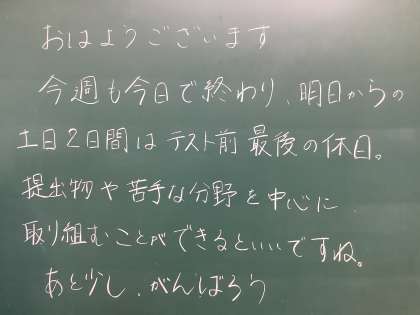 おはようございます
今週も今日で終わり、明日からの
土日2日間はテスト前最後の休日。
提出物や苦手な分野を中心に
取り組むことができるといいですね。
あと少し、がんばろう